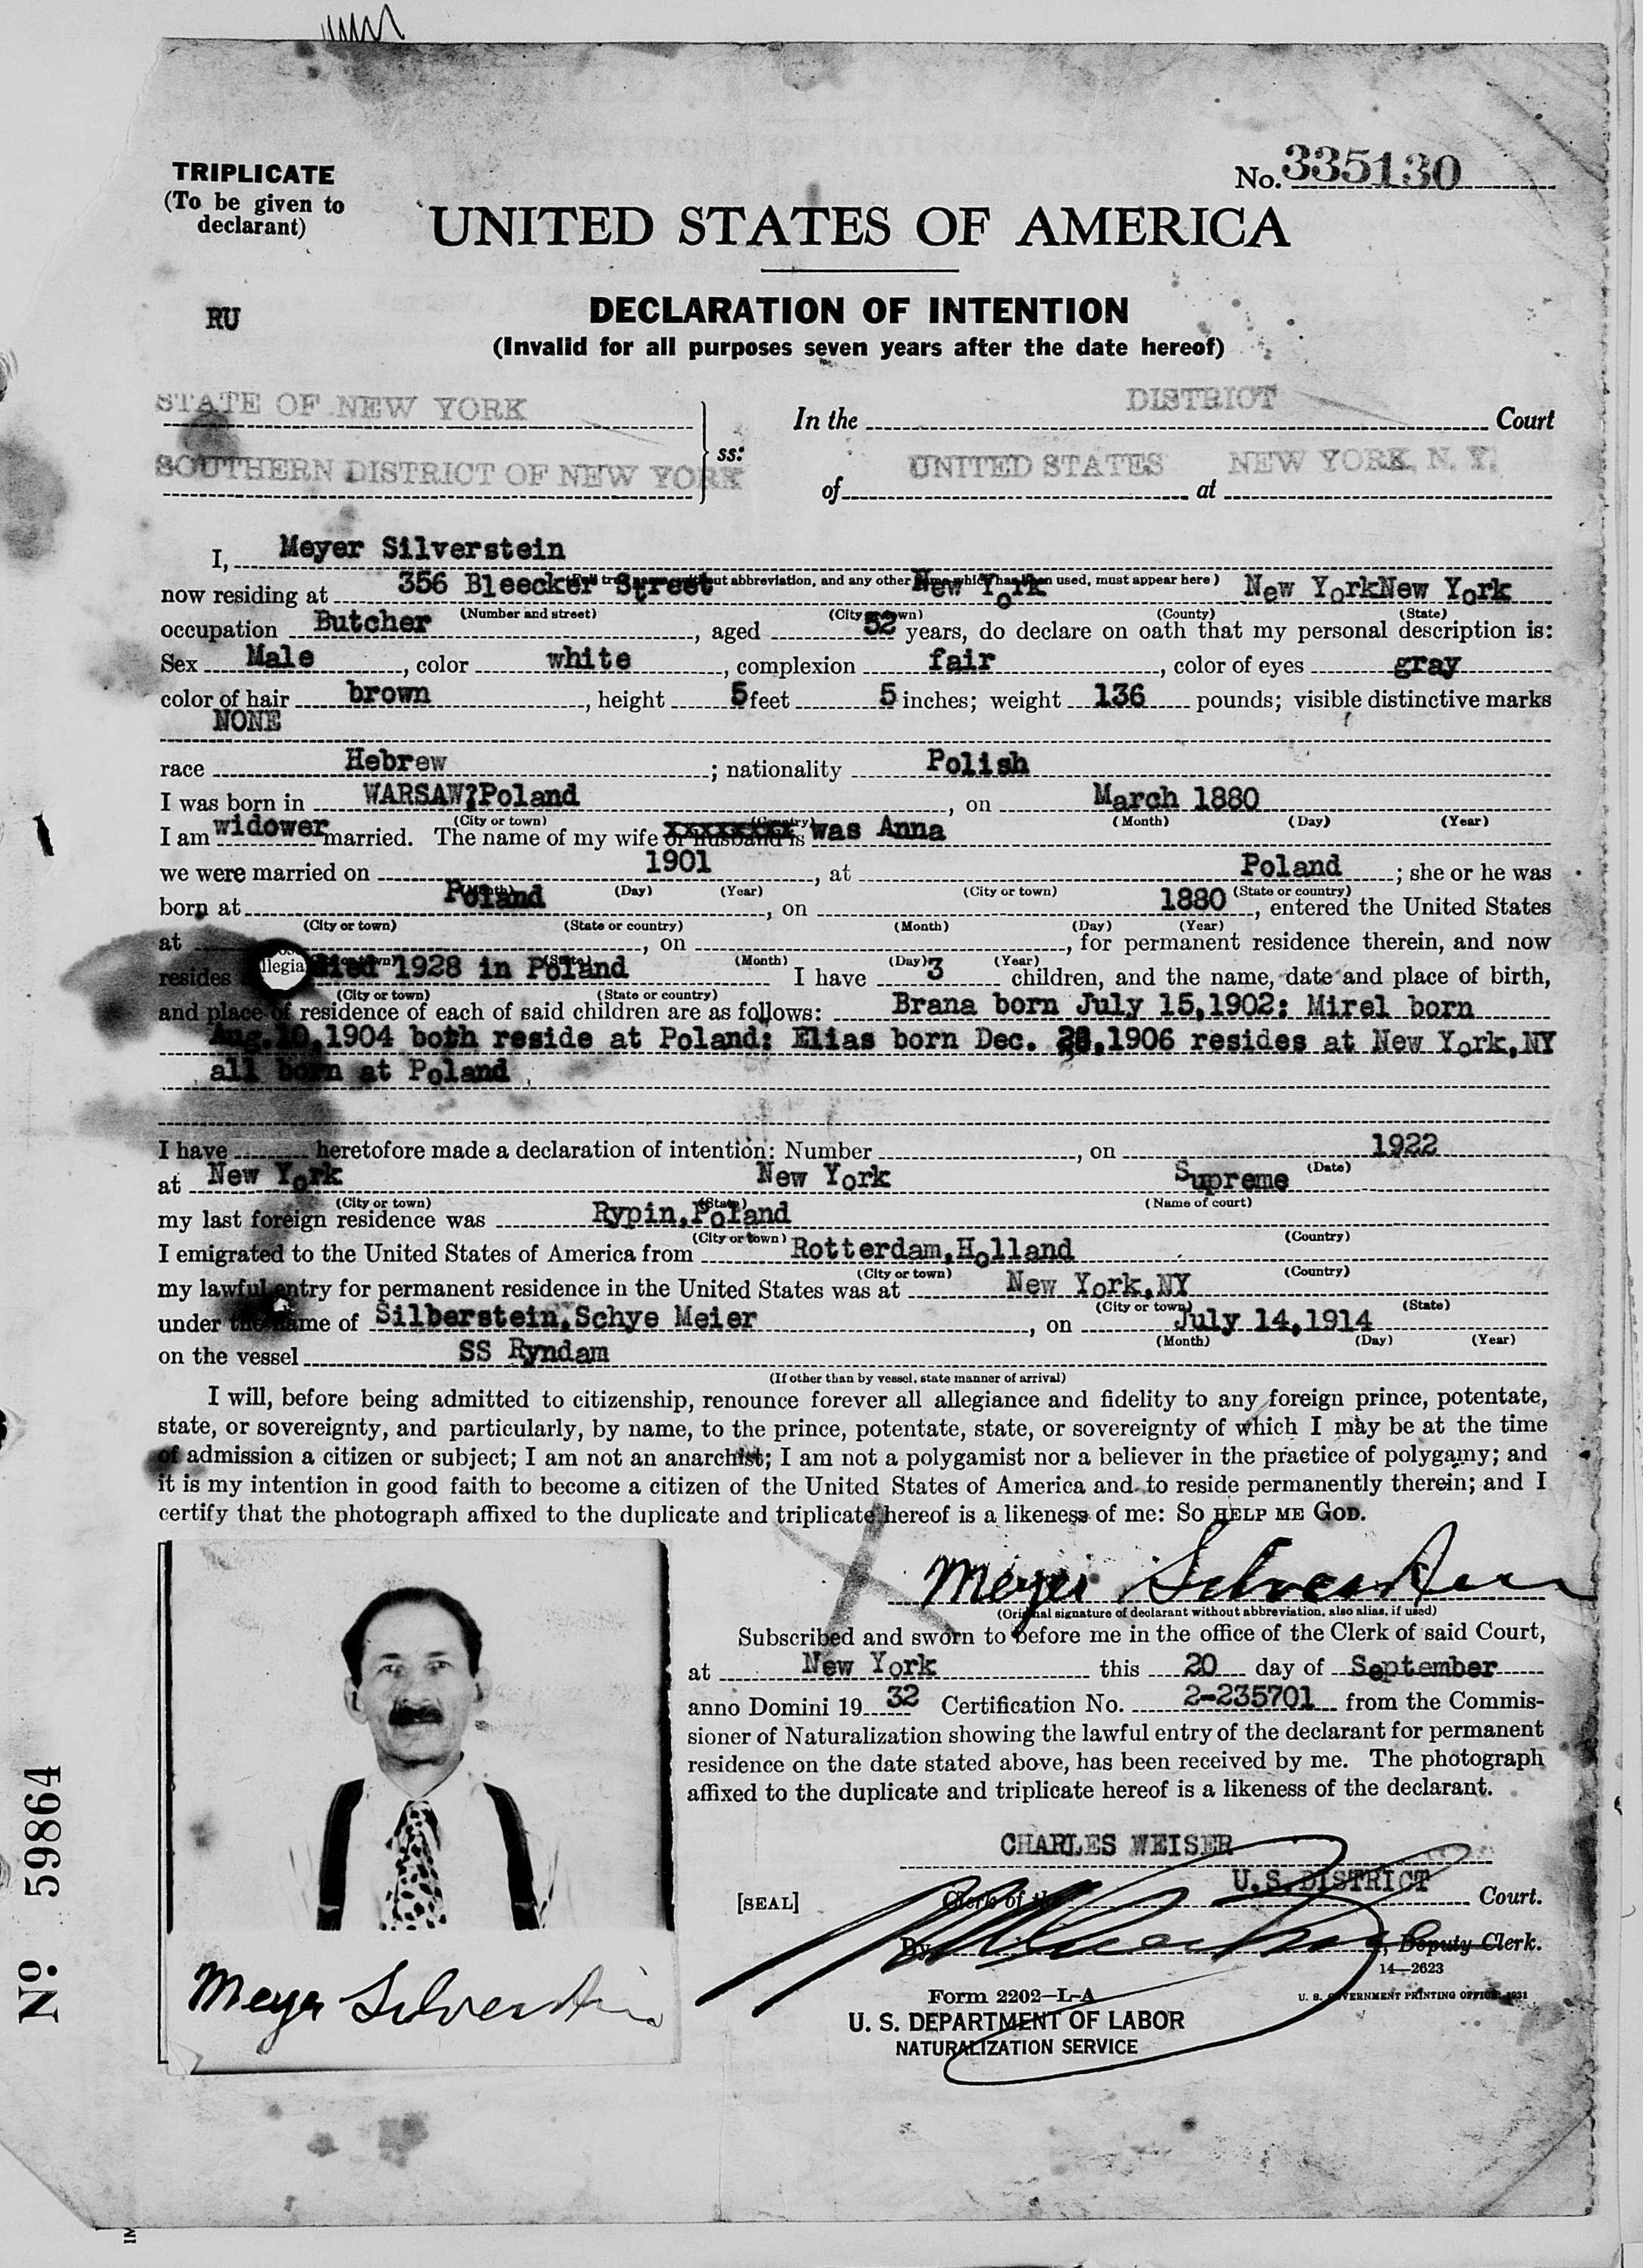 TRIPLICATE
(To be given to
declarant)
No. 335130
UNITED STATES OF AMERICA
RU
DECLARATION OF INTENTION
(Invalid for all purposes seven years after the date hereof)
STATE OF NEW YORK
SOUTHERN DISTRICT OF NEW YORK
ss:
In the DISTRICT Court
of UNITED STATES at NEW YORK, N. Y.
I, Meyer Silverstein
(Full true name, without abbreviation, and any other name which has been used, must appear here)
now residing at 356 Bleecker Street New York New YorkNew York
(Number and street) (City or town) (County) (State)
occupation Butcher, aged 52 years, do declare on oath that my personal description is:
Sex Male, color white, complexion fair, color of eyes gray
color of hair brown, height 5 feet 5 inches; weight 136 pounds; visible distinctive marks
NONE
race Hebrew; nationality Polish
I was born in WARSAW?Poland, on March 1880
(City or town) (Country) (Month) (Day) (Year)
I am widower married. The name of my wife or husband is was Anna
we were married on 1901, at Poland; she or he was
(Month) (Day) (Year) (City or town) (State or country)
born at Poland, on 1880, entered the United States
(City or town) (State or country) (Month) (Day) (Year)
at, on, for permanent residence therein, and now
(City or town) (State) (Month) (Day) (Year)
resides died 1928 in Poland I have 3 children, and the name, date and place of birth,
(City or town) (State or country)
and place of residence of each of said children are as follows: Brana born July 15,1902; Mirel born
Aug.10,1904 both reside at Poland; Elias born Dec. ,1906 resides at New York,NY
all born at Poland
I have heretofore made a declaration of intention: Number, on 1922
(Date)
at New York New York Supreme
(City or town) (State) (Name of court)
my last foreign residence was Rypin,Poland
(City or town) (Country)
I emigrated to the United States of America from Rotterdam,Holland
(City or town) (Country)
my lawful entry for permanent residence in the United States was at New York,NY
(City or town) (State)
under the name of Silberstein,Schye Meier, on July 14,1914
(Month) (Day) (Year)
on the vessel SS Ryndam
(If other than by vessel, state manner of arrival)
I will, before being admitted to citizenship, renounce forever all allegiance and fidelity to any foreign prince, potentate,
state, or sovereignty, and particularly, by name, to the prince, potentate, state, or sovereignty of which I may be at the time
of admission a citizen or subject; I am not an anarchist; I am not a polygamist nor a believer in the practice of polygamy; and
it is my intention in good faith to become a citizen of the United States of America and to reside permanently therein; and I
certify that the photograph affixed to the duplicate and triplicate hereof is a likeness of me: SO HELP ME GOD.
Meyer Silverstein
(Original signature of declarant without abbreviation, also alias, if used)
Subscribed and sworn to before me in the office of the Clerk of said Court,
at New York this 20 day of September
anno Domini 19 32 Certification No. 2-235701 from the Commis-
sioner of Naturalization showing the lawful entry of the declarant for permanent
residence on the date stated above, has been received by me. The photograph
affixed to the duplicate and triplicate hereof is a likeness of the declarant.
CHARLES WEISER
[SEAL] Clerk of the U.S. DISTRICT Court.
By, Deputy Clerk.
14—2623
Meyer Silverstein
Form 2202—L-A
U. S. GOVERNMENT PRINTING OFFICE: 1931
U. S. DEPARTMENT OF LABOR
NATURALIZATION SERVICE
No. 59864